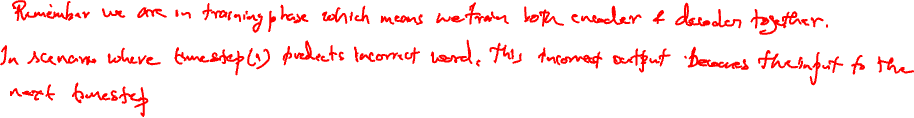 Remember we are in training phase which means we train both encoder & decoder together.
In scenario where timestep(1) predicts incorrect word, This incorrect output becomes the input to the
next timestep